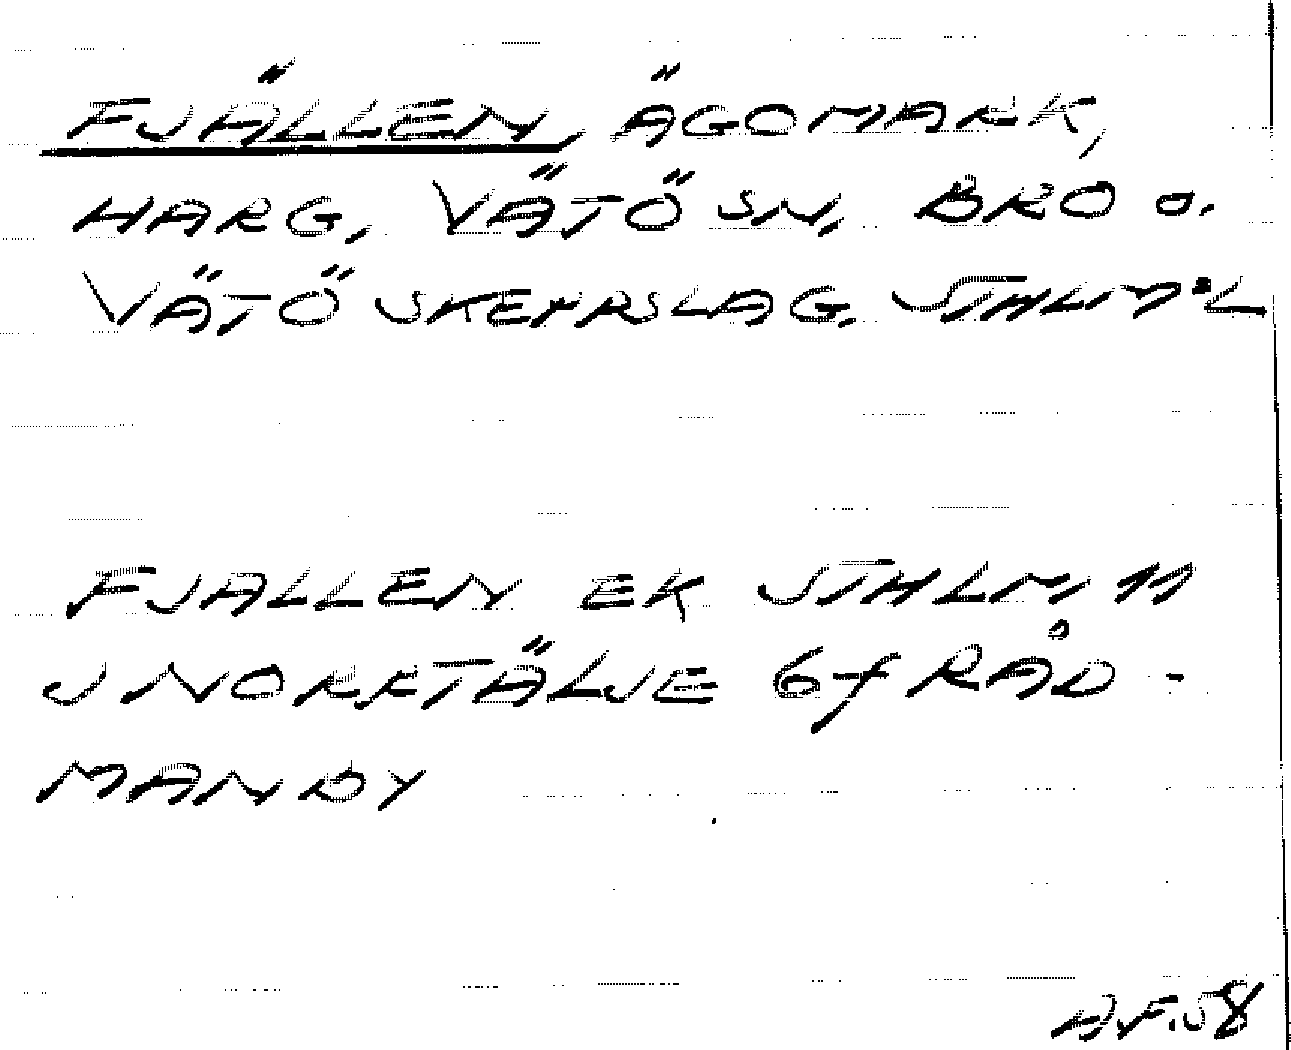 FJÄLLEN, ÄGOMARK,
HARG, VÄTÖ SN, BRO O.
VÄTÖ SKEPPSLAG. STHLM:S L
FJALLEN EK STHLM 11
J NORRTÄLJE 6f RÅD-
MANBY
A.F. 58